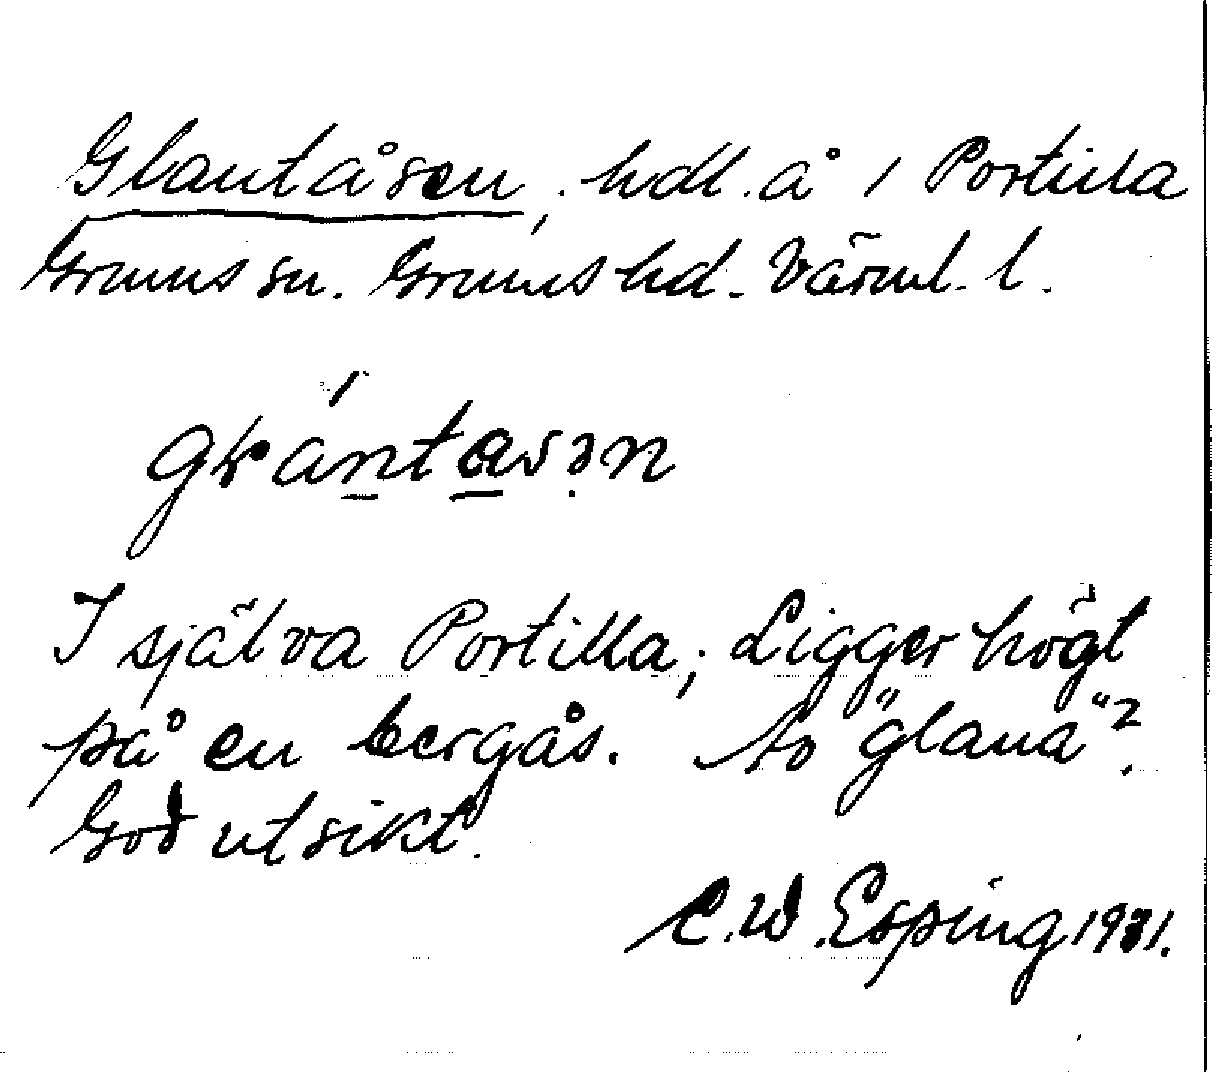 Glantåsen, hdl. å i Portilla
Grums sn. Grums hd. Värml. l.
I själva Portilla; Ligger högt
på en bergås. Av "glana"?
God utsikt.
C.W. Esping 1931.